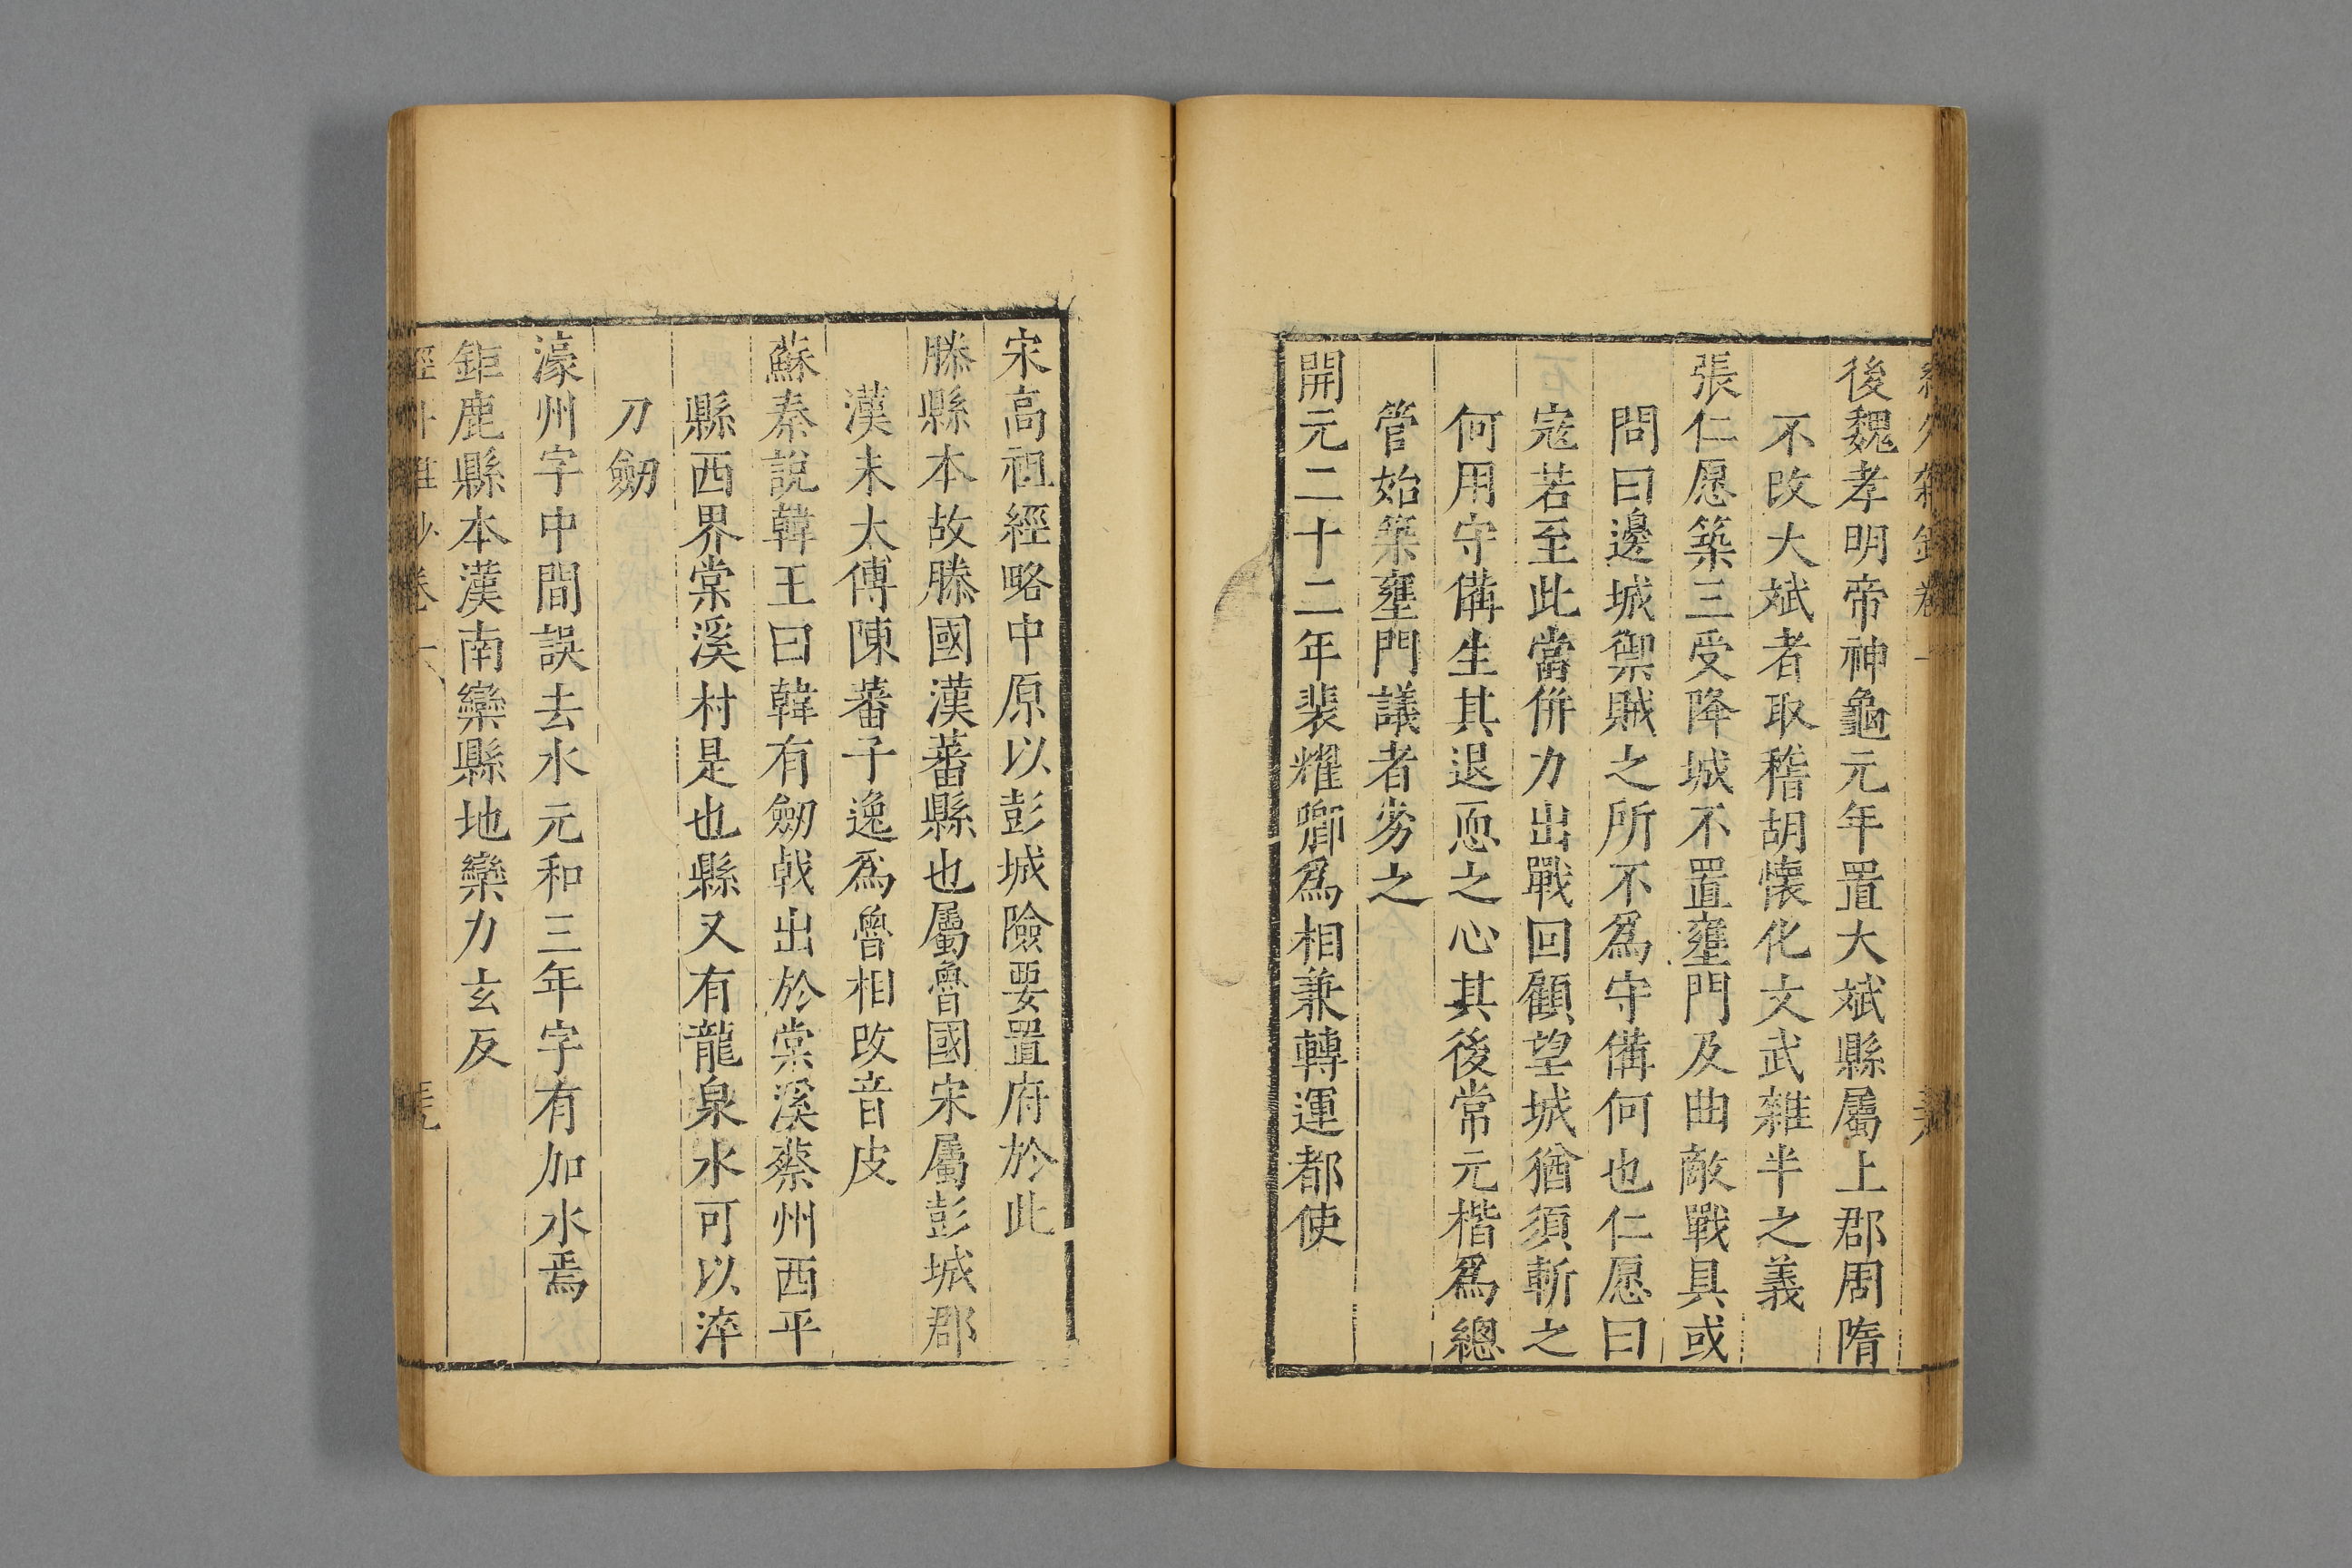 後魏孝明帝神龜元年置大斌縣屬上郡周隋
不改大斌者取稽胡懷化文武雜半之義
張仁愿築三受降城不置壅門及曲敵戰具或
問曰邊城禦賊之所不爲守備何也仁愿曰
宼若至此當併力出戰回顧望城猶須斬之
何用守備生其退恧之心其後常元楷爲總
管始築壅門議者劣之
開元二十二年裴耀卿爲相兼轉運都使
宋高祖經略中原以彭城險要置府於此
滕縣本故滕國漢蕃縣也屬魯國宋屬彭城郡
漢末太傅陳蕃子逸爲魯相改音皮
蘇秦說韓王曰韓有劒戟出於棠溪蔡州西平
縣西界棠溪村是也縣又有龍泉水可以淬
刀劒
濠州字中間誤去水元和三年字有加水焉
鉅鹿縣本漢南欒縣地欒力玄反